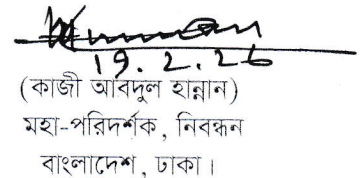 19.2.26
(কাজী আবদুল হান্নান)
মহা-পরিদর্শক, নিবন্ধন
বাংলাদেশ, ঢাকা।